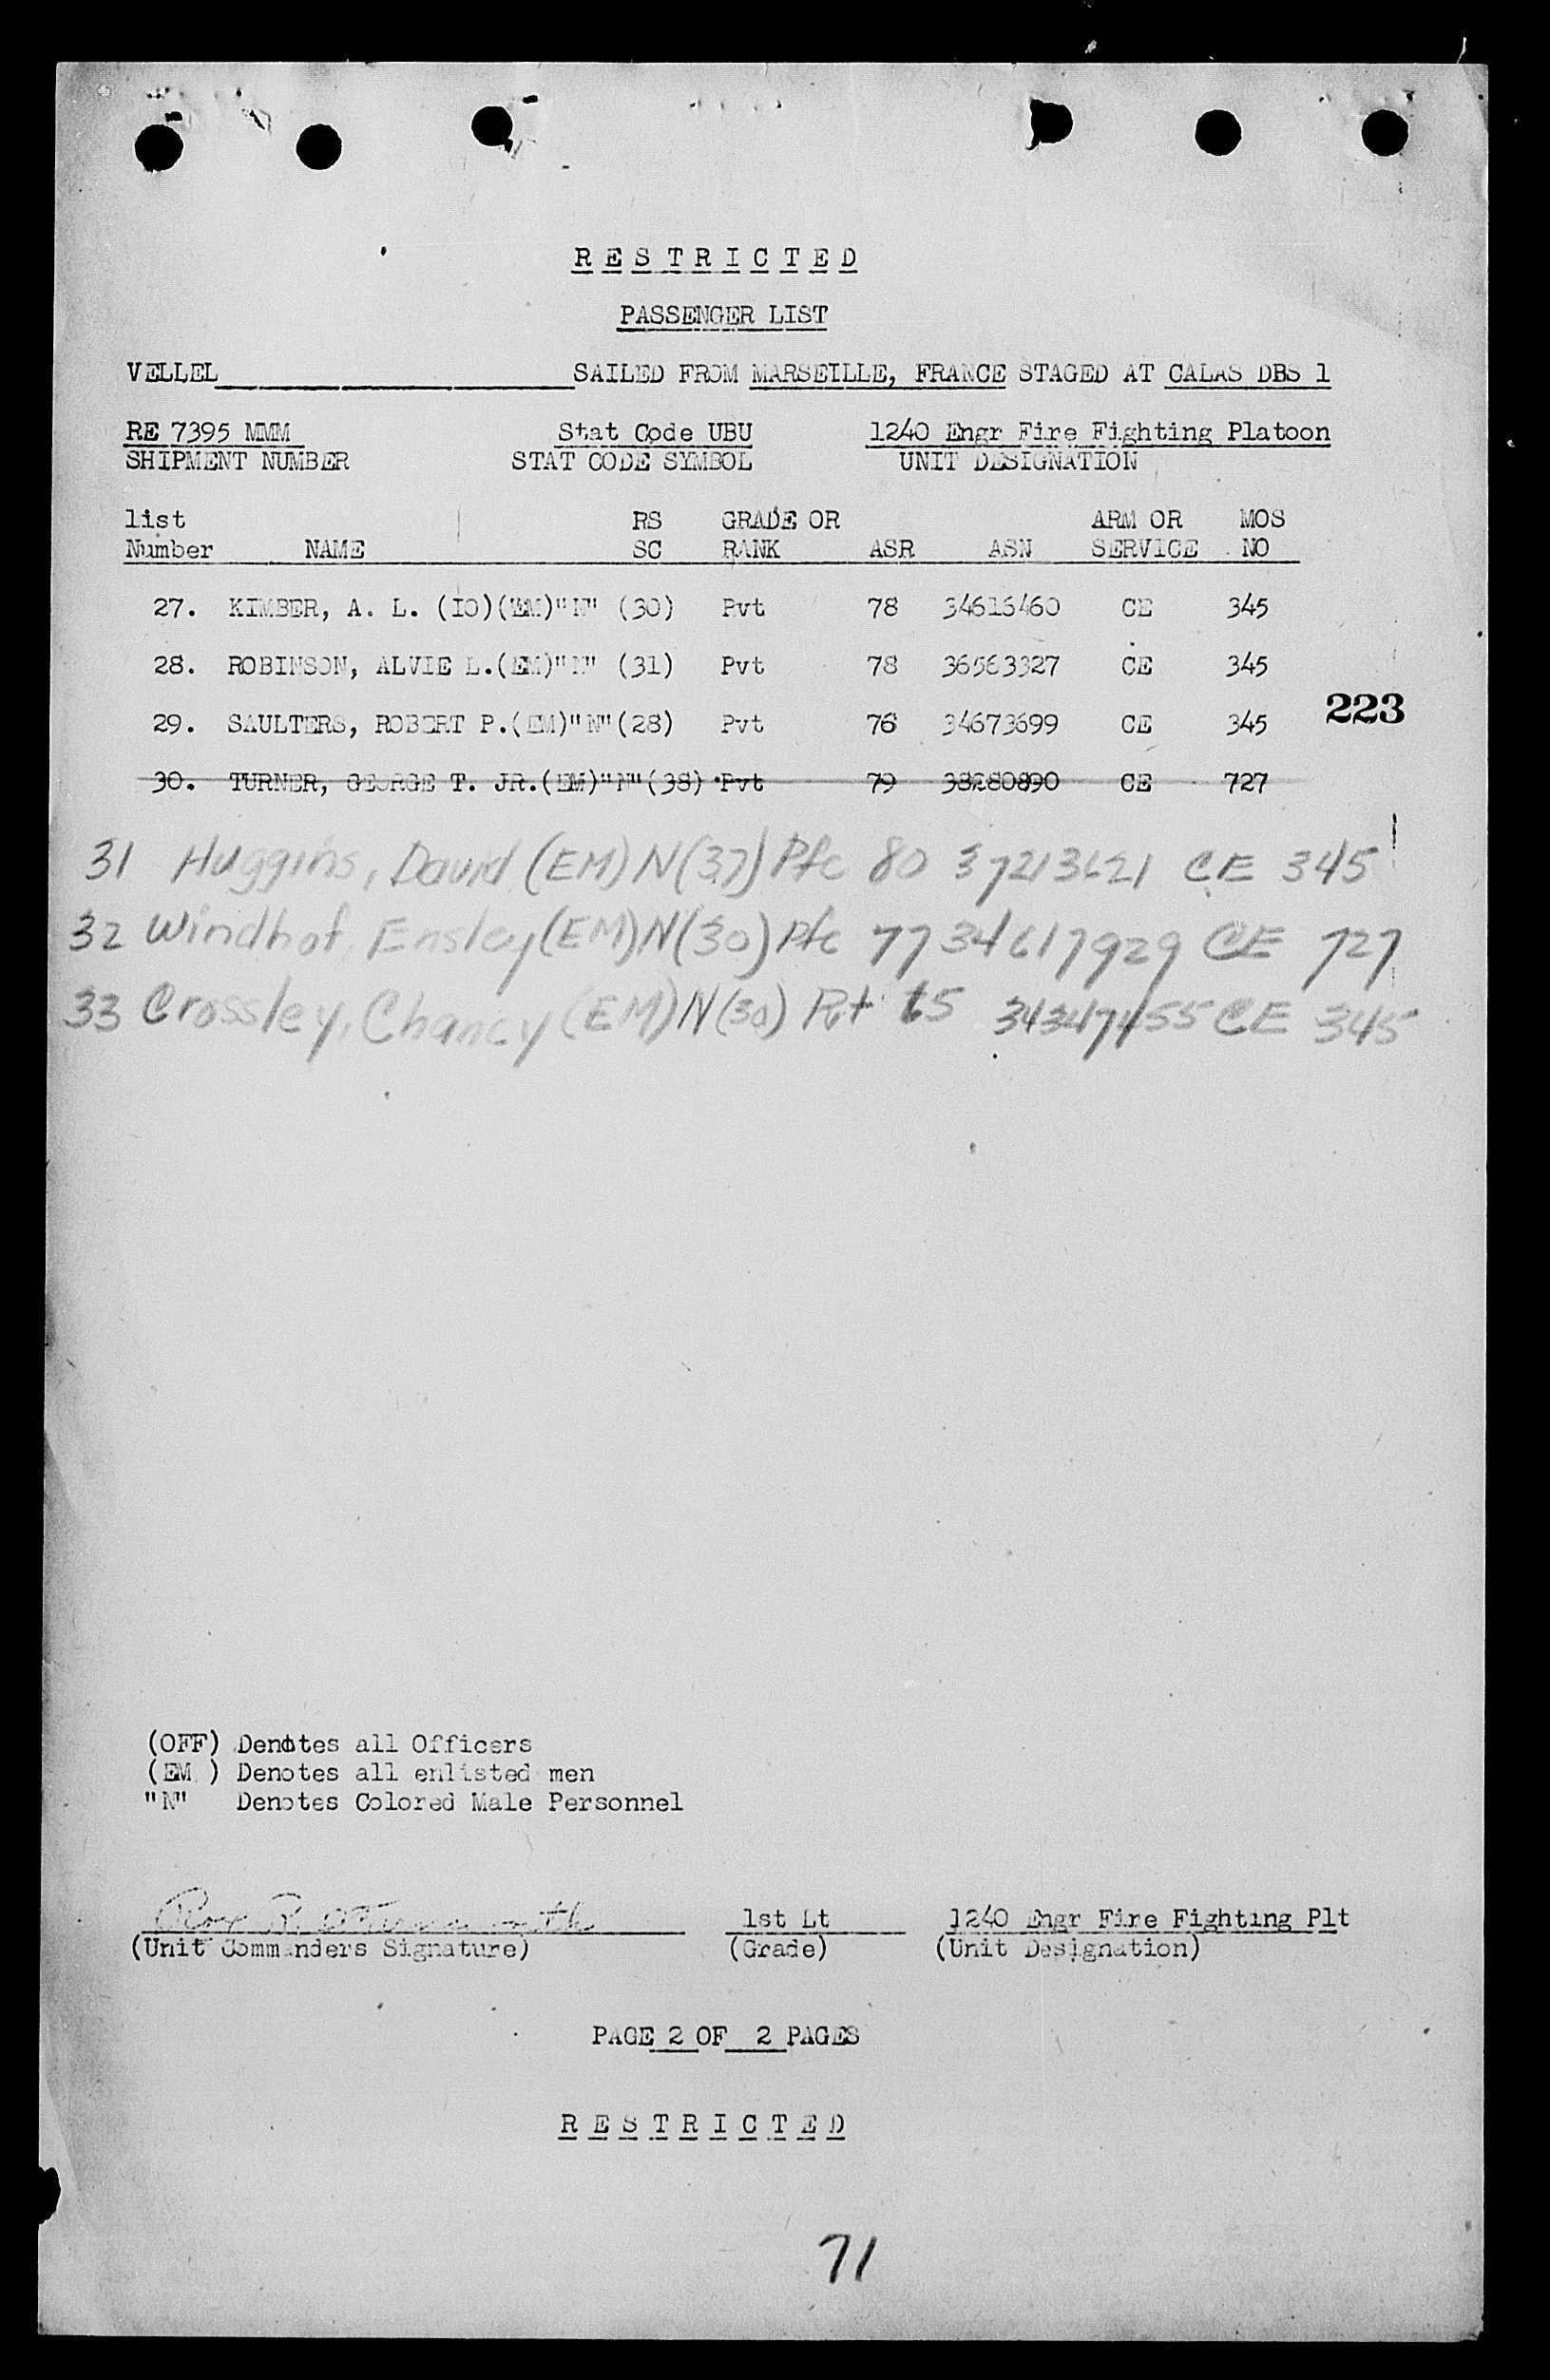 RESTRICTED
PASSENGER LIST
VELLEL SAILED FROM MARSEILLE, FRANCE STAGED AT CALAS DBS 1
RE 7395 MMM Stat Code UBU 1240 Engr Fire Fighting Platoon
SHIPMENT NUMBER STAT CODE SYMBOL UNIT DESIGNATION
list RS GRADE OR ARM OR MOS
Number NAME SC RANK ASR ASN SERVICE NO
27. KIMBER, A. L. (IO)(EM)"N" (30) Pvt 78 34615460 CE 345
28. ROBINSON, ALVIE L.(EM)"N" (31) Pvt 78 36563327 CE 345
223
29. SAULTERS, ROBERT P.(EM)"N"(28) Pvt 76 34673699 CE 345
30. TURNER, GEORGE T. JR.(EM)"N"(38) Pvt 79 38280890 CE 727
31 Huggins, David (EM) N(37) Pfc 80 37213621 CE 345
32 Windhof, Ensley (EM) N(30) Pfc 77 34617929 CE 727
33 Crossley, Chancy (EM) N(30) Pvt 65 CE 345
(OFF) Denotes all Officers
(EM ) Denotes all enlisted men
"N" Denotes Colored Male Personnel
Roy R. 1st Lt 1240 Engr Fire Fighting Plt
(Unit Commanders Signature) (Grade) (Unit Designation)
PAGE 2 OF 2 PAGES
RESTRICTED
71